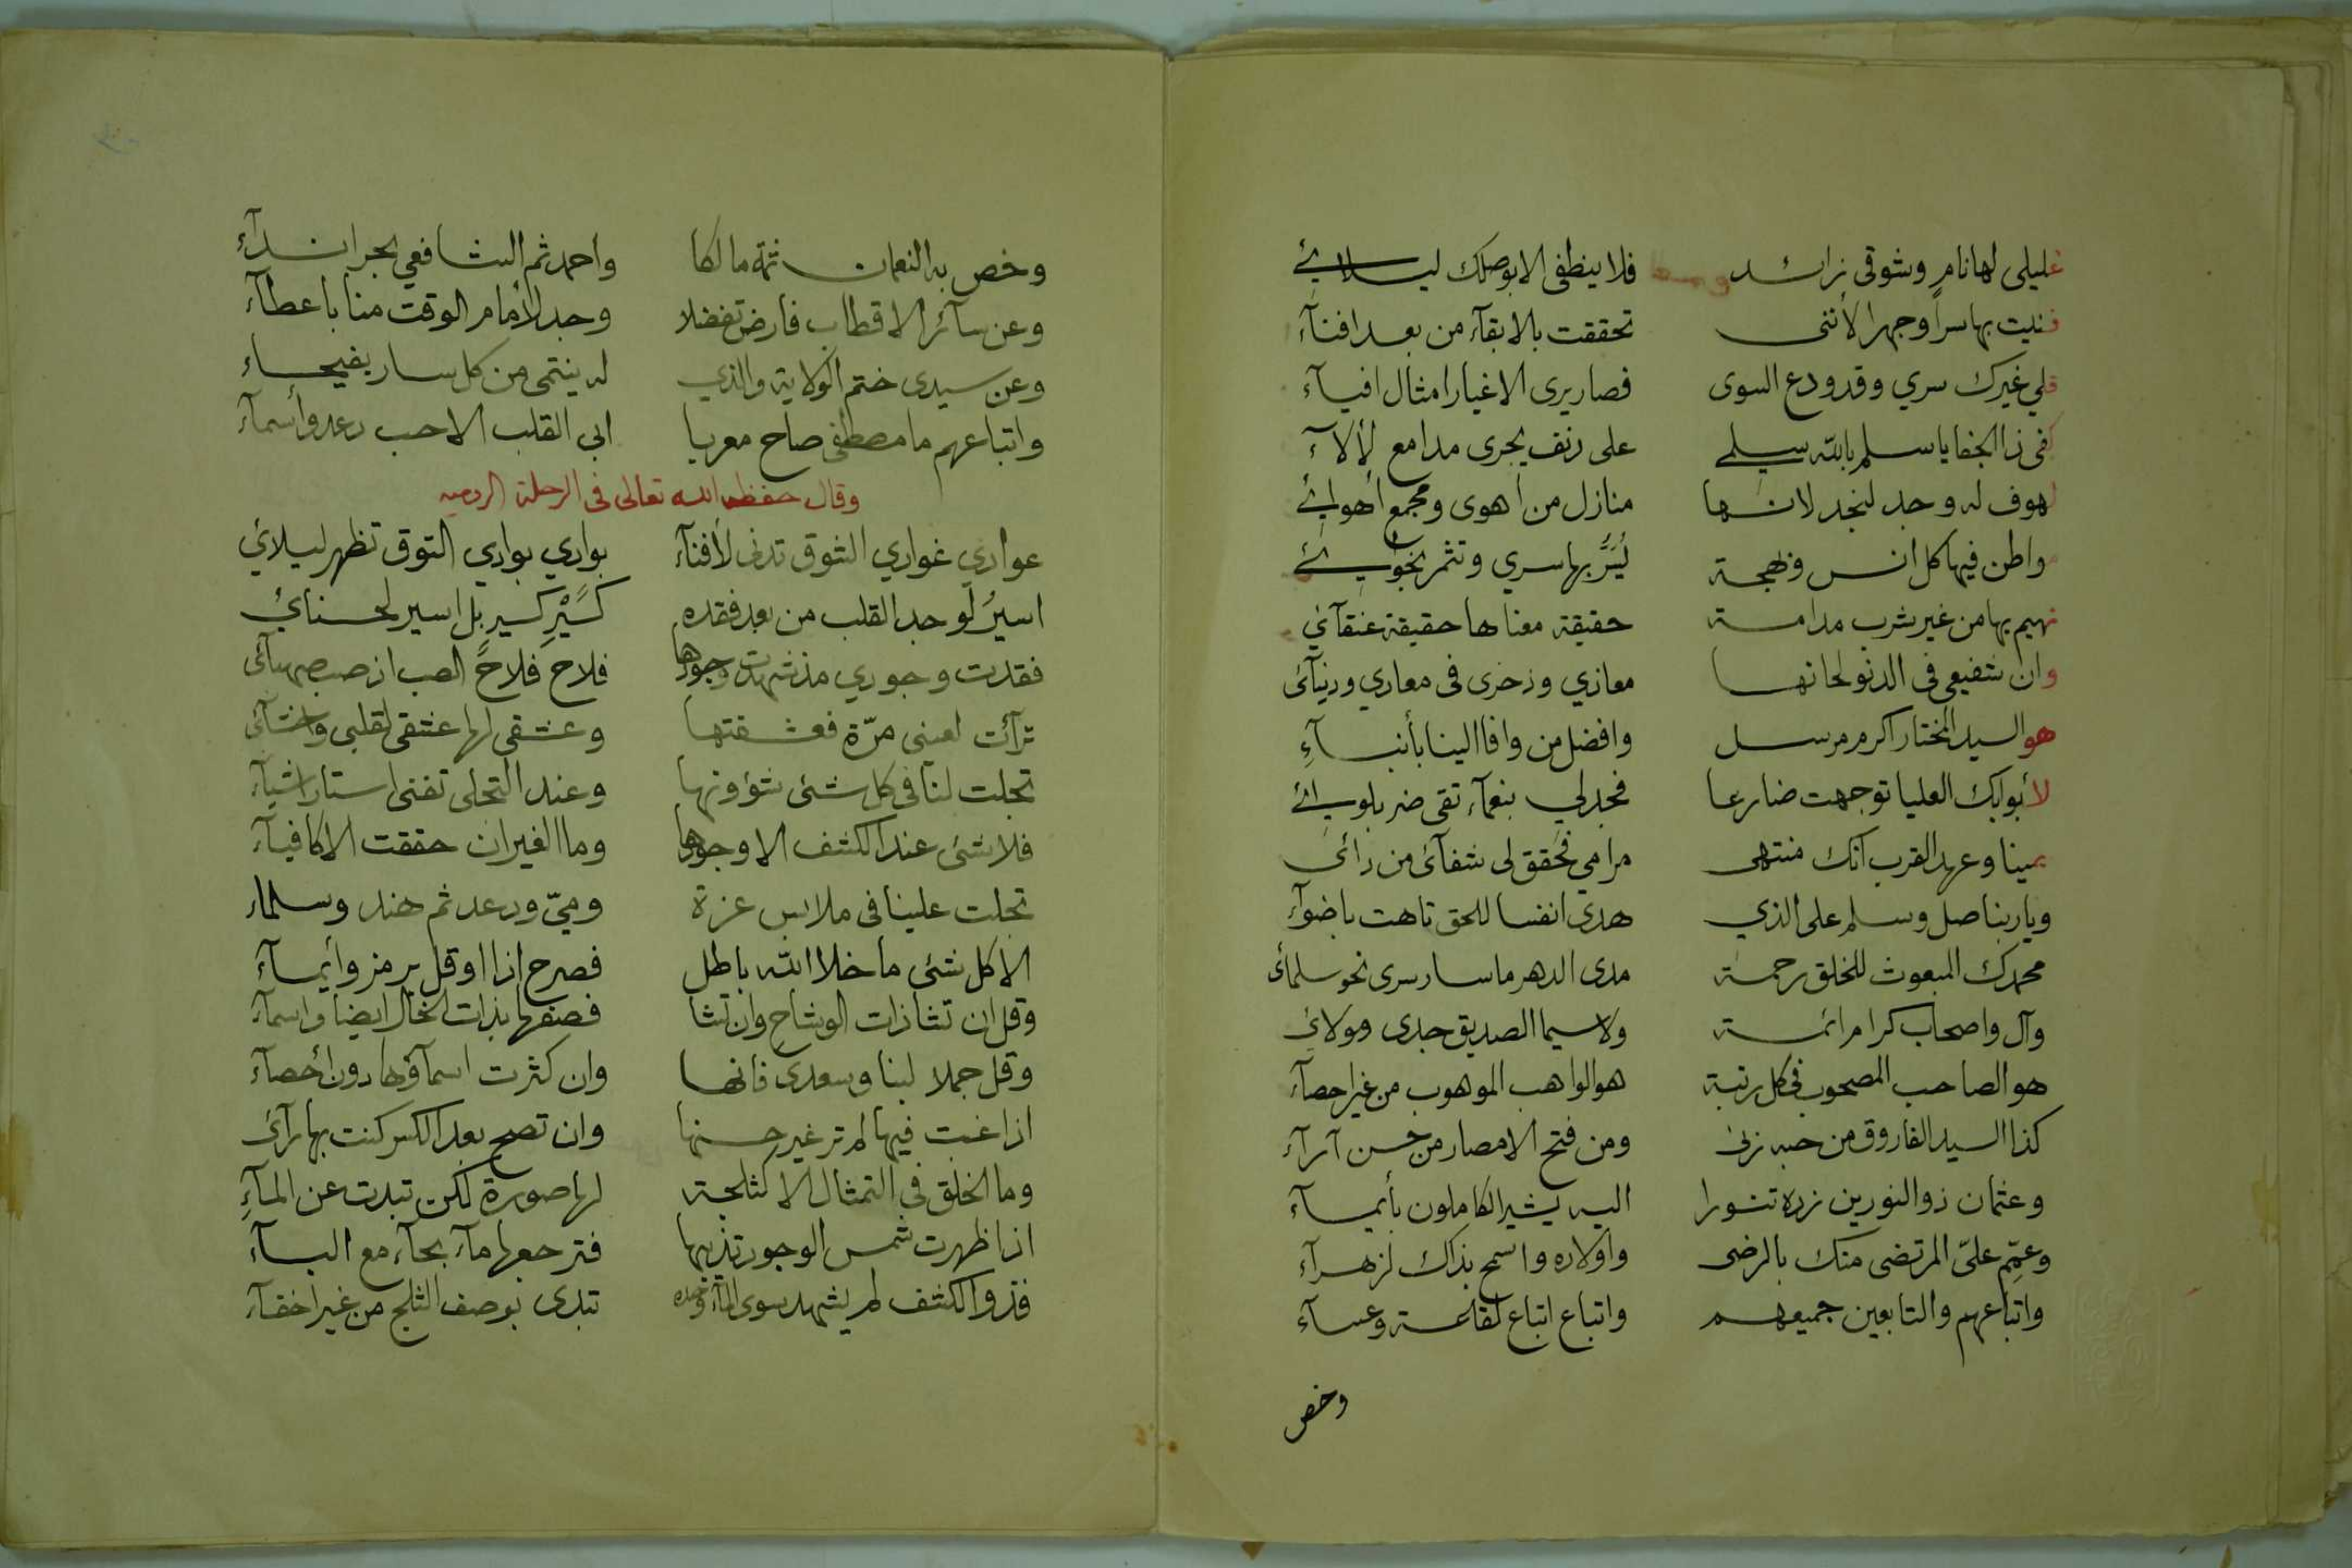 غليلى لها نام وشوقى زائد فلا ينطفى الا بوصلك ليلائے
فنيت بها سراً وجهرا لأننى تحققت بالابقآء من بعد افنآء
قلي غيرك سري وقد ودع السوى فصار يرى الاغيار امثال افيآء
كفى ذا الجفا يا سلم بالله سيلے على دنف يجرى مدامع لألآء
لهوف له وجد لنجد لانها منازل من اهوى ومجمع أهوائے
مواطن فيها كل انس وبهجة يُسَرُّ بها سري وتثمر نجوائے
نهيم بها من غير شرب مدامة حقيقة معناها حقيقة عنقآئي
وان شفيعى فى الدنو لحانها معاذي وذخرى فى معادي ودنيآئى
هو السيد المختار اكرم مرسل وافضل من وافا الينا بأنبآءِ
لأبوابك العليا توجهت ضارعا فجد لي بنعمآء تقى ضر بلوائے
يمينا وعهد القرب انك منتهى مرامي فحقق لى شفآئى من دائى
ويا ربنا صل وسلم على الذي هدى انفسا للحق تاهت باضوآء
محمدك المبعوث للخلق رحمة مدى الدهر ما سار سرى نحو سلمائى
وآل واصحاب كرام ائمة ولا سيما الصديق جدى ومولائى
هو الصاحب المصحوب فى كل رتبة هو الواهب الموهوب من غير احصآء
كذا السيد الفاروق من حبه زنى ومن فتح الامصار من حسن آرآء
وعثمان ذو النورين زده تنورا اليه يشير الكاملون بأيمآء
وعمِّم علىّ المرتضى منك بالرضى واولاده واسمح بذاك لزهرآء
واتباعهم والتابعين جميعهم واتباع اتباع لقاعة وعسآء
وخص
وخص به النعمان ثمة مالكا واحمد ثم الشافعي بحر اندآء
وعن سآئر الاقطاب فارض تفضلا وجد لأمام الوقت منا باعطآء
وعن سيدى ختم الولاية والذي له ينتمى من كل سار بفيحاء
واتباعهم ما مصطفى صاح معربا ابى القلب الا حب دعد وأسمآء
وقال حفظه الله تعالى فى الرحلة الروميه
عواري غواري الشوق تدنى لأفنآء بوادي بوادي التوق تظهر ليلائي
اسيرُ لوجد القلب من بعد فقده كسَيْرِ كسير بل اسير لحسنائي
فقدت وجودي مذ شهدت وجودها فلاح فلاحً الصب اذ صب صهبآئى
ترآئت لعينى مرّة فعشقتها وعشقى لها عشقى لقلبى واحشآئى
تجلت لنا فى كل شئى شؤونها وعند التجلى تفنى استار اشيآء
فلا شئى عند الكشف الا وجودها وما الغير ان حققت الا كافيآء
تجلت علينا فى ملابس عزة وميّ ودعد ثم هند وسلمآء
الا كل شئى ما خلا الله باطل فصرح اذا او قل برمز وأيمآء
وقل ان تشا ذات الوشاح وان تشا فصفها بذات الخال ايضا واسمآء
وقل جملا لبنا وسعدى فانها وان كثرت اسمآؤها دون أحصآء
اذا غبت فيها لم تر غير حسنها وان تصح بعد السكر كنت بها رآئى
وما الخلق فى التمثال الا كثلجة لها صورة لكن تبدت عن المآءِ
اذا ظهرت شمس الوجود تذيبها فترجعها مآء بحآء مع البآء
فذو الكشف لم يشهد سوى المآء وحده تبدى بوصف الثلج من غير اخفآء